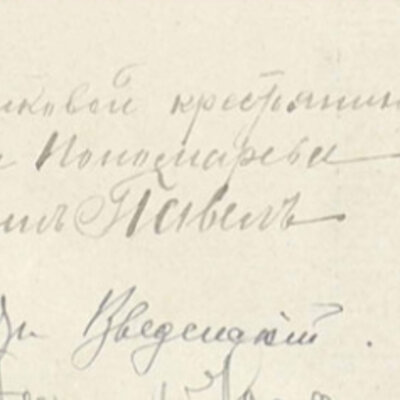 иковой крестьянин
а Пономарева
илъ Павелъ
Введенский.